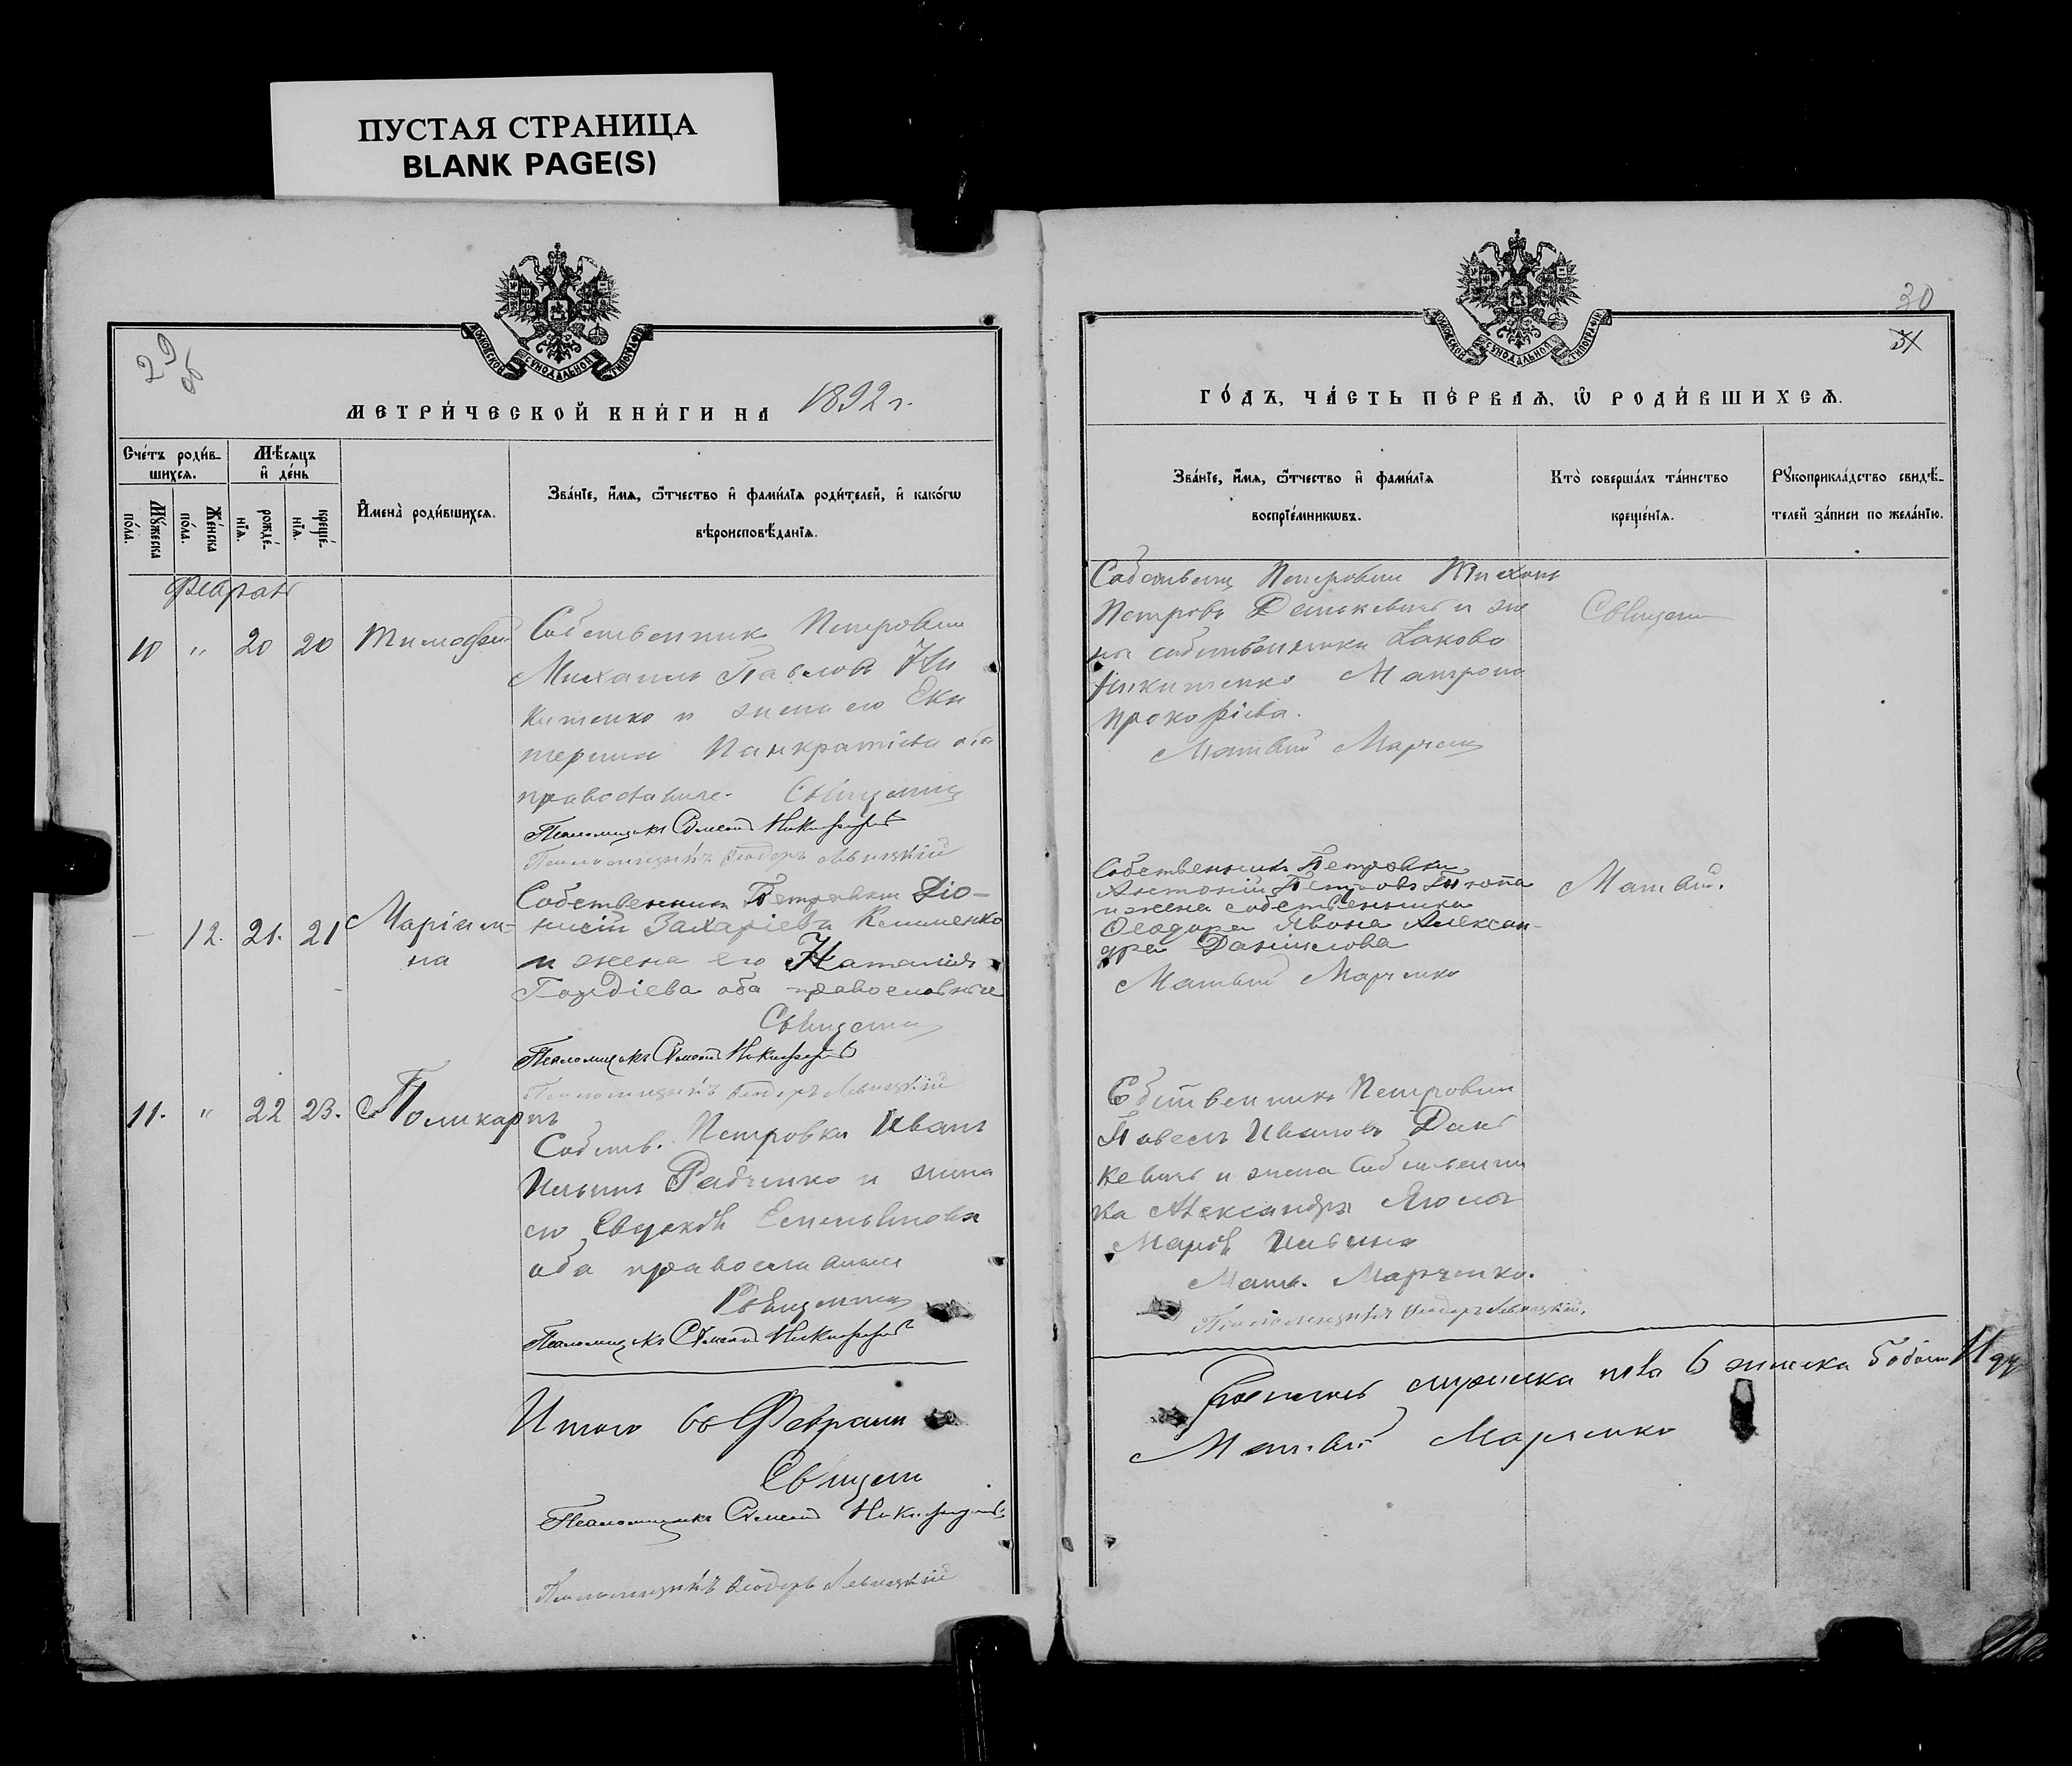 ПУСТАЯ СТРАНИЦА
BLANK PAGE(S)
МОСКОВСКОЙ СУНОДАЛЬНОЙ ТИПОГРАФІИ
29
об
МЕТРИ́ЧЕСКОЙ КНИ́ГИ НА 1892 г.
Сче́тъ роди́в-
шихсѧ.
Мѣ́сѧцъ
и҆ де́нь
Мꙋ́жеска
по́ла.
Же́нска
по́ла.
рожде́-
нїѧ.
креще́-
нїѧ.
И҆мена̀ роди́вшихсѧ.
Зва́нїе, и҆́мѧ, ѻ҆́тчество и҆ фами́лїѧ роди́телей, и҆ како́гѡ
вѣроисповѣ́данїѧ.
Феврал
10 " 20 20 Тимофей
Собственник Петровки
Михаил Павлов Ни
китенко и жена его Ека
терина Панкратіева оба
православные. Священник
Псаломщикъ Никифоровъ
Псаломщикъ Ѳеодоръ Левицкій
12. 21. 21 Маріам-
на
Собственникъ Петровки Діо-
нисій Захаріевъ Клименко
и жена его Наталія
Гордіева оба православные
Священник
Псаломщикъ Никифоровъ
Псаломщикъ Ѳеодоръ Левицкій
11. " 22 23. Поликарпъ
Собств. Петровки Иванъ
Ильинъ Радченко и жена
его Евдокія Емельянова
оба православные
Священник
Псаломщикъ Никифоровъ
Итого въ Феврали
Священ
Псаломщикъ Никифоровъ
Псаломщикъ Ѳеодоръ Левицкій
30
31
МОСКОВСКОЙ СУНОДАЛЬНОЙ ТИПОГРАФІИ
ГО́ДЪ, ЧА́СТЬ ПЕ́РВАѦ, Ѡ҆ РОДИ́ВШИХСѦ.
Зва́нїе, и҆́мѧ, ѻ҆́тчество и҆ фами́лїѧ
воспрїе́мникѡвъ.
Кто̀ соверша́лъ та́инство
креще́нїѧ.
Рꙋкоприкла́дство свидѣ́-
телей за́писи по жела́нїю.
Собственник Петровки Тихонъ
Петровъ Данькевичъ и же
на собственника Іакова
Никитенко Матрона
Прокофіева.
Священ
Матвій Марченко
Собственникъ Петровки
Антоній Петровъ
и жена собственника
Ѳеодора Явона Алексан-
дра Даніилова
Матвій.
Матвій Марченко
Собственникъ Петровки
Павелъ Ивановъ Дань
кевичъ и жена собственни
ка Александра
Марія Ильина
Матв. Марченко.
Псаломщикъ Ѳеодоръ Левицкій.
мужеска пола 6 женска 5 обоего 11
Матвій Марченко